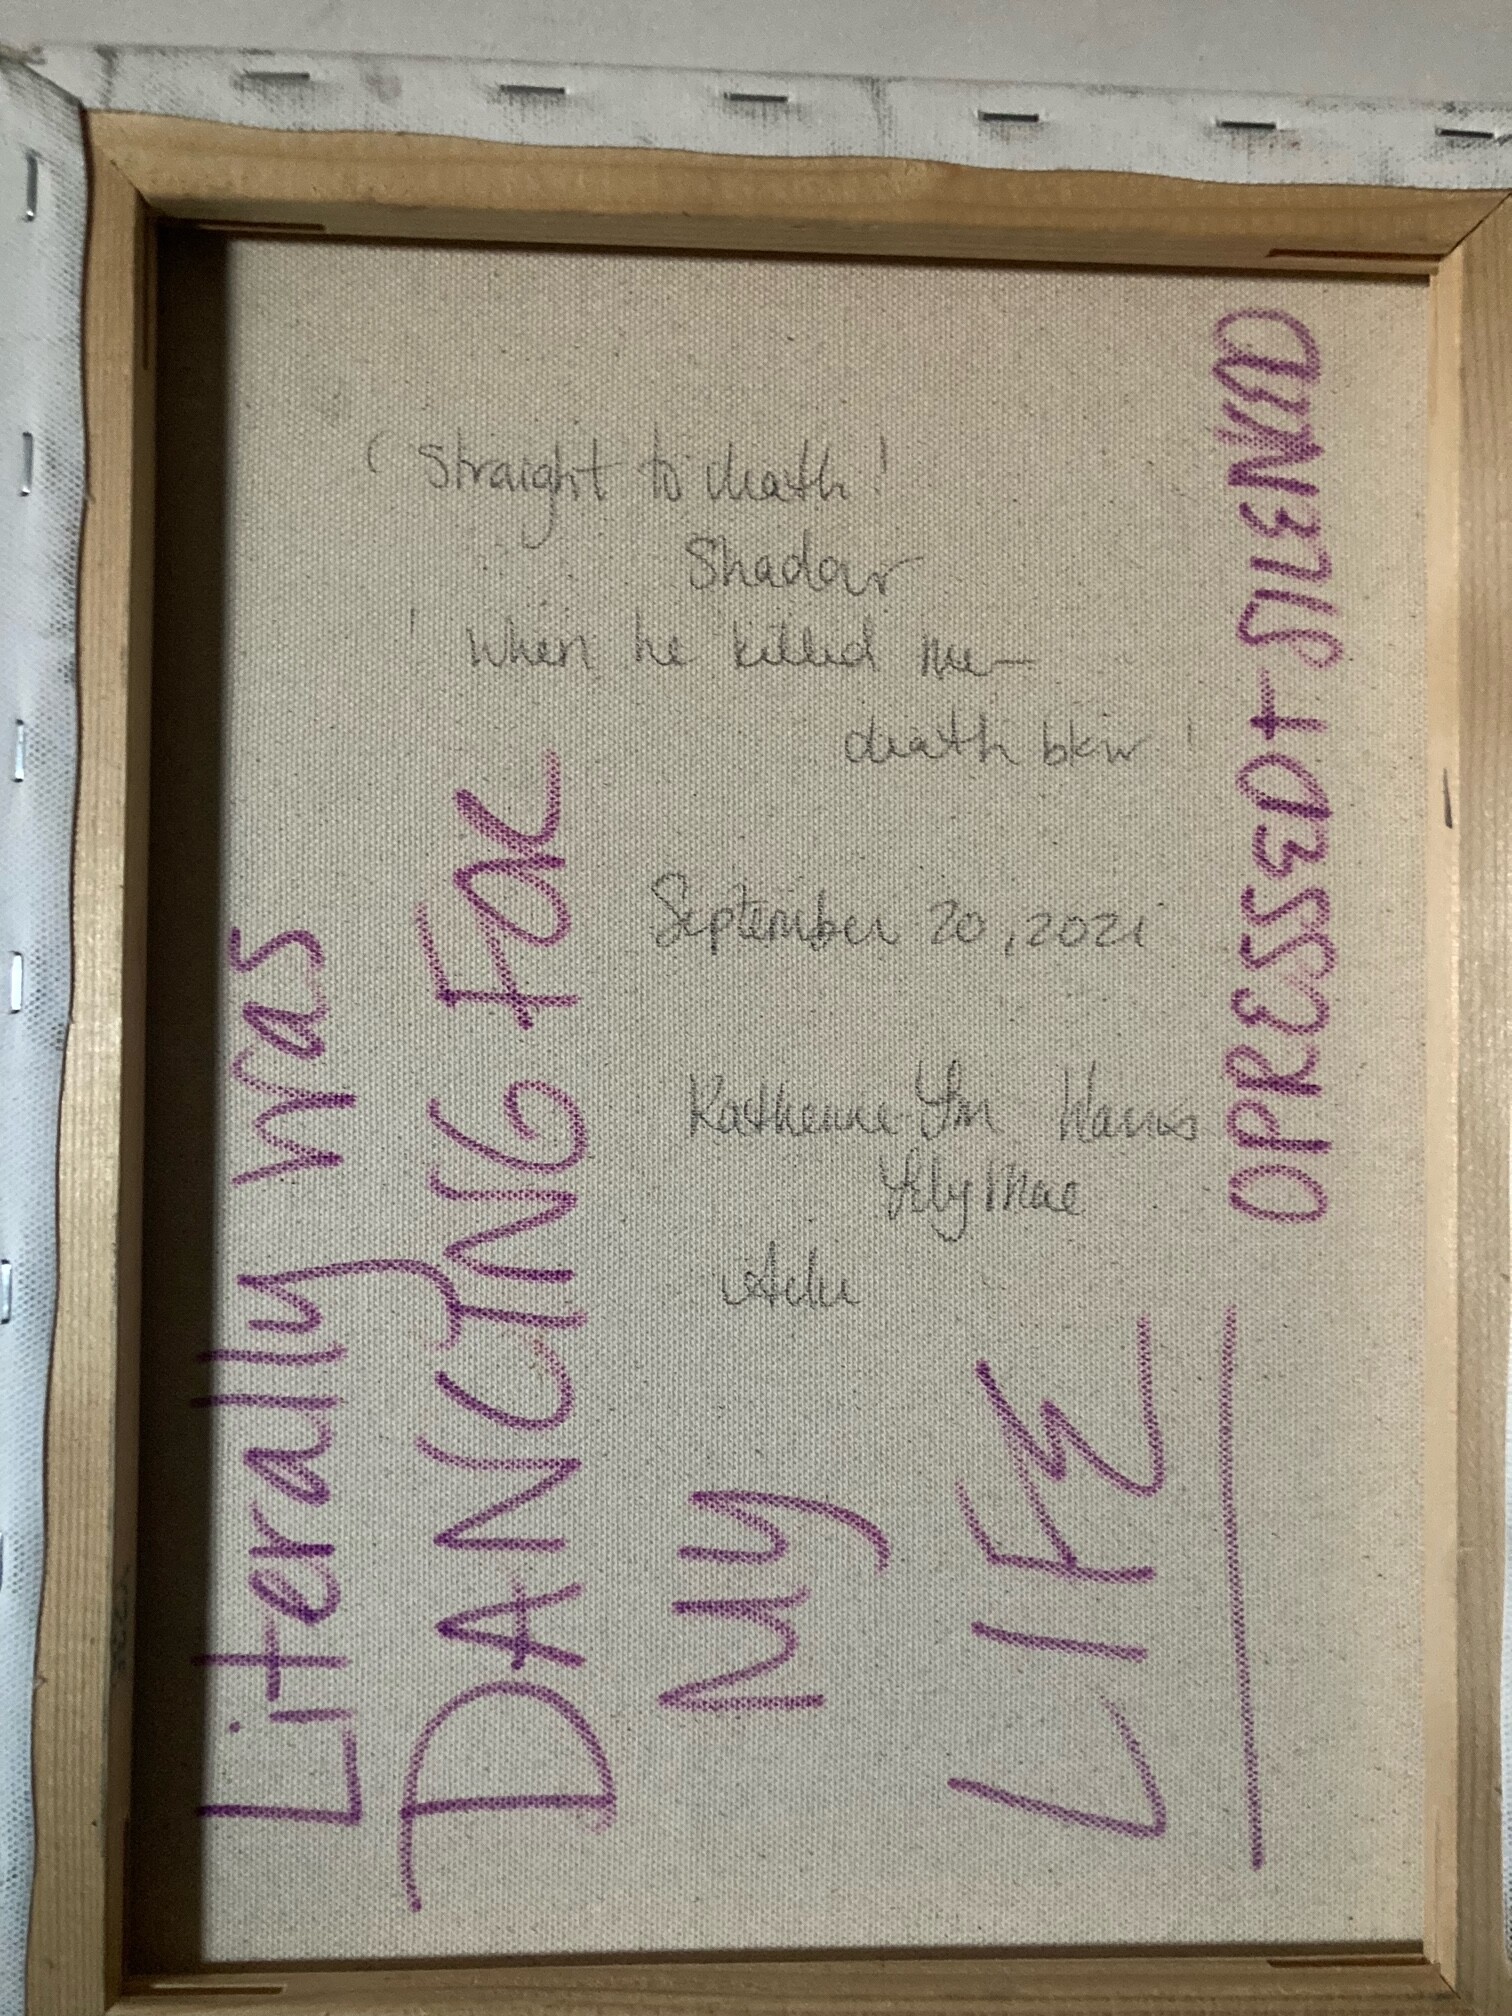 ( Straight to death!
Shadow
! When he killed me—
death blow !
September 20, 2021
Katherine Harris
Mae
Literally was
DANCING FOR
MY
LIFE
OPRESSED + SILENCED